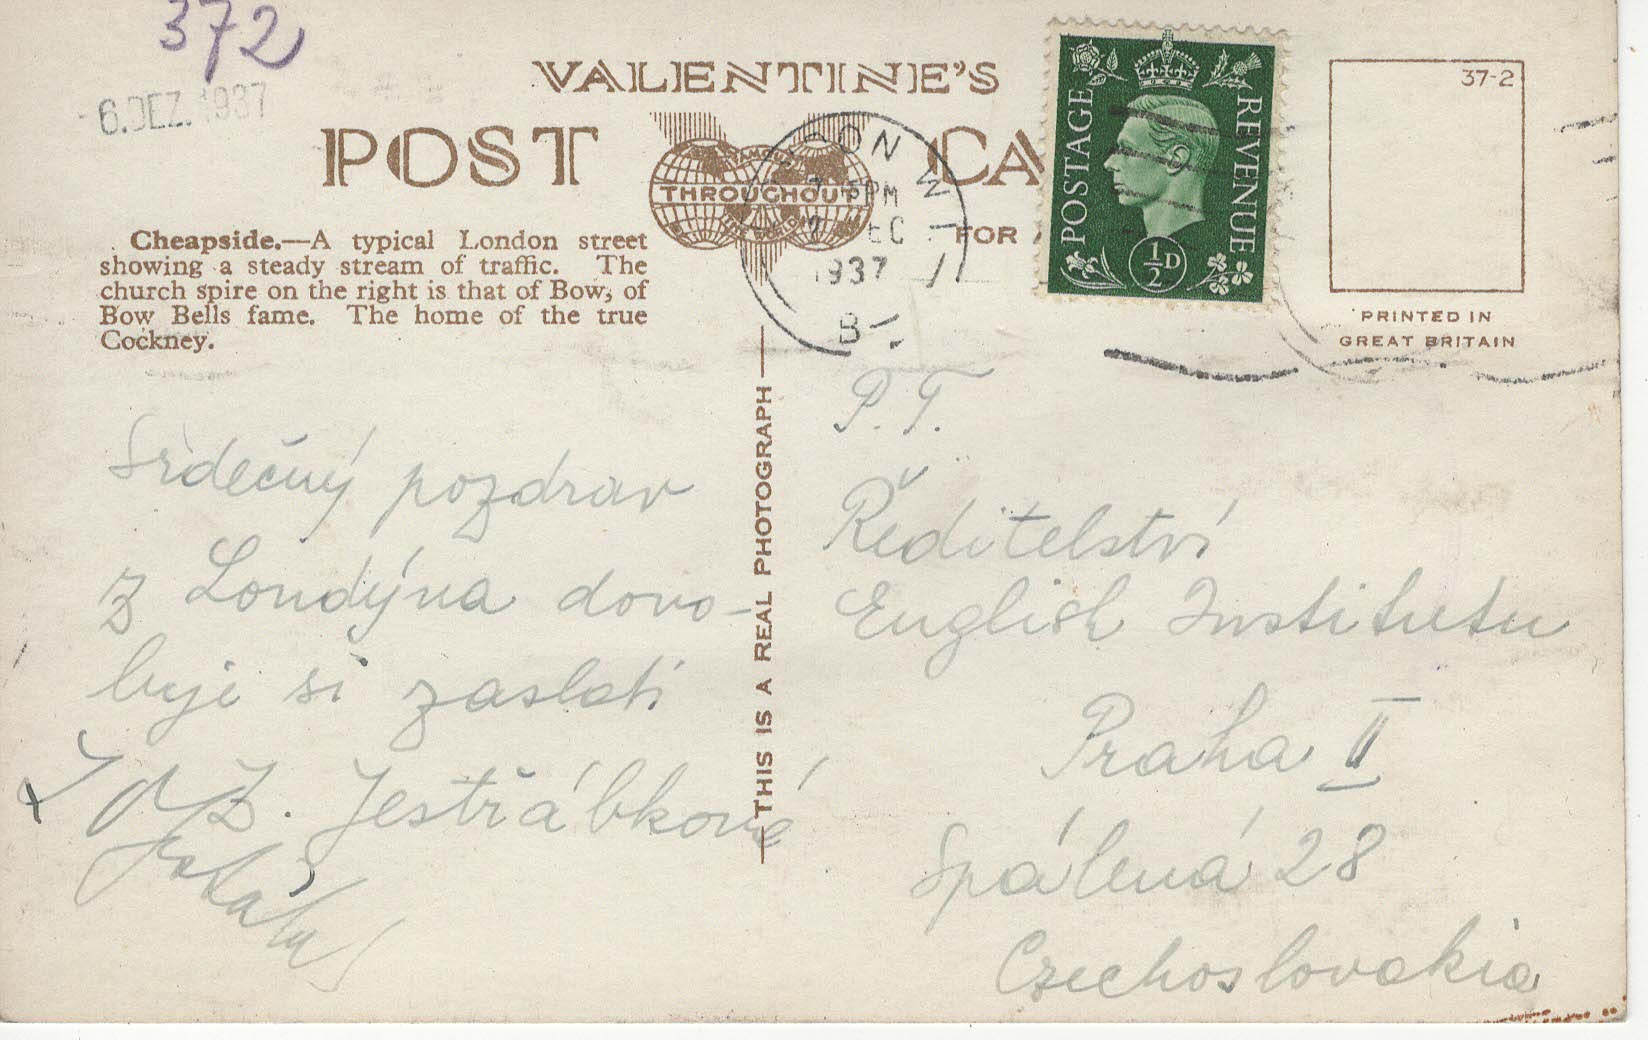 372
6.DEZ.1937
VALENTINE'S
POST CA
THROUGHOUT
FOR
37-2
PRINTED IN
GREAT BRITAIN
POSTAGE
REVENUE
½D
PM
1937
B
Cheapside.—A typical London street
showing a steady stream of traffic. The
church spire on the right is that of Bow, of
Bow Bells fame. The home of the true
Cockney.
THIS IS A REAL PHOTOGRAPH
Srdečný pozdrav
z Londýna dovo-
luje si zaslati
Ž. Jestřábková
P.T.
Ředitelství
English Institutu
Praha II
Spálená 28
Czechoslovakia